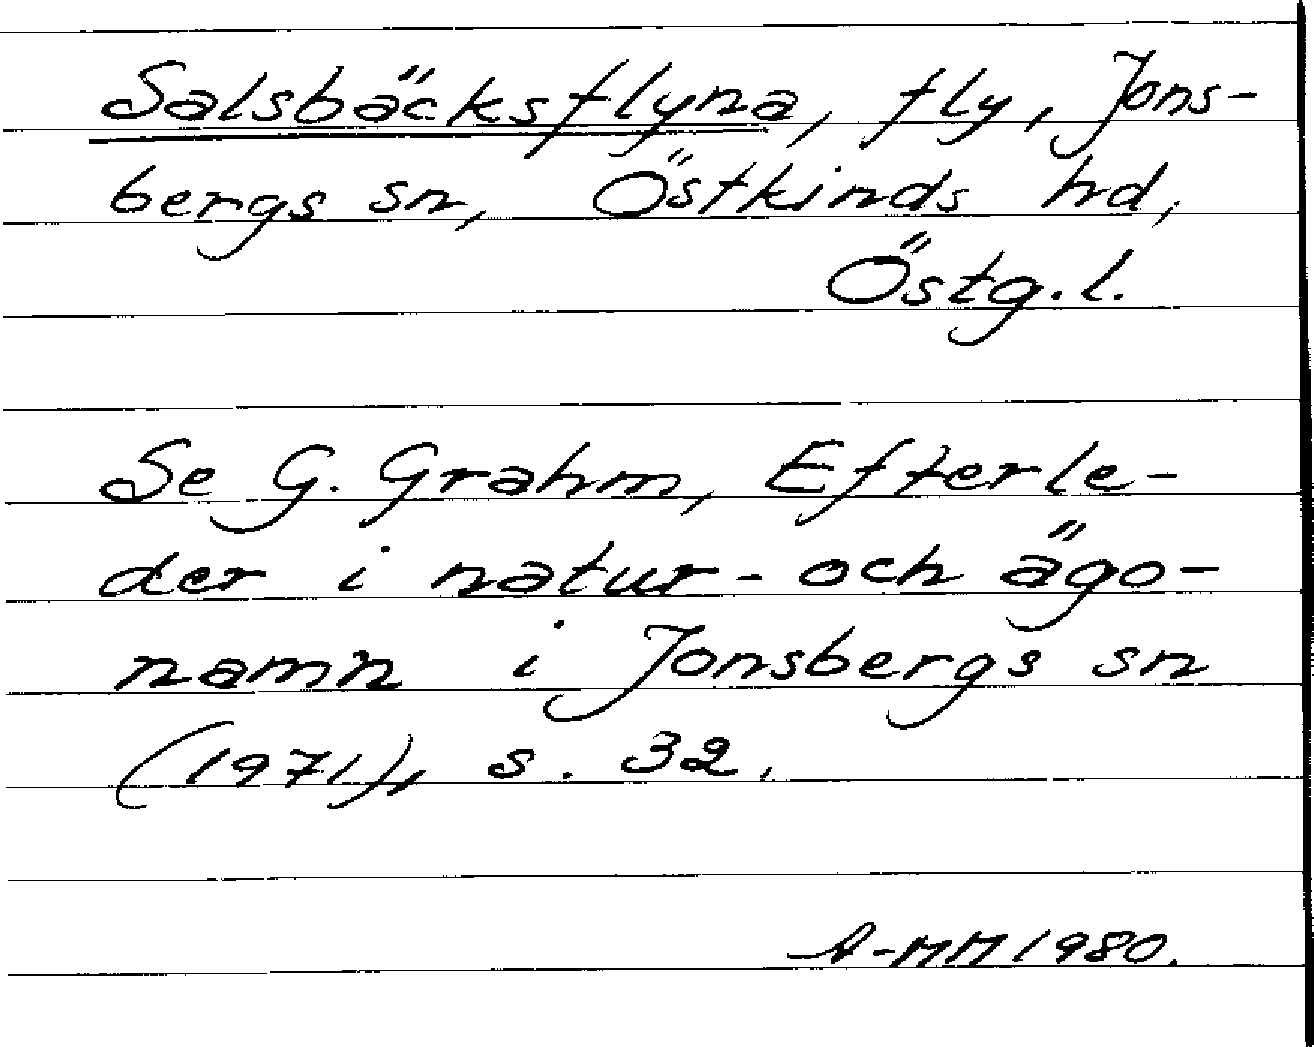 Salsbäcksflyna, fly, Jons-
bergs sn, Östkinds hd,
Östg.l.
Se G. Grahm, Efterle-
der i natur- och ägo-
namn i Jonsbergs sn
(1971), s. 32.
A-MM 1980.